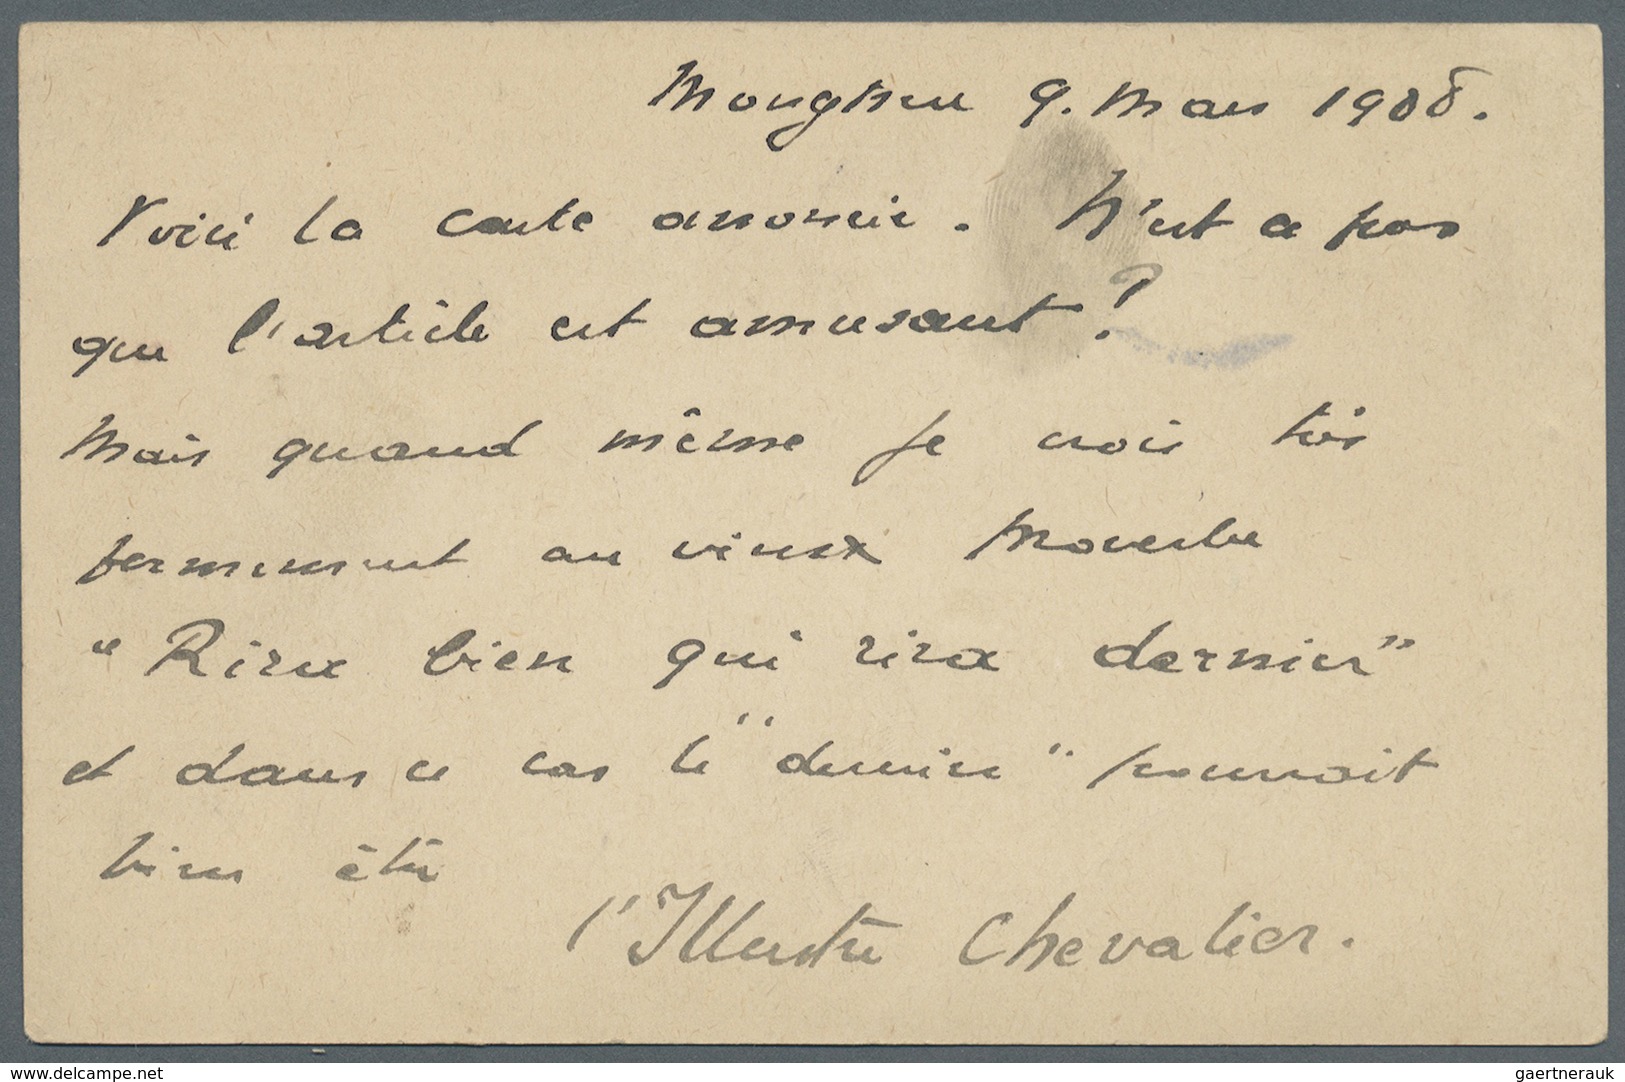 Mongtseu 9. Mars 1908.
Voici la carte annoncée. N'est ce pas
que l'article est amusant?
Mais quand même je crois très
fermement au vieux proverbe
"Rira bien qui rira dernier"
et dans ce cas le "dernier" pourrait
bien être
l'Illustre Chevalier.
www.delcampe.net
gaertnerauk